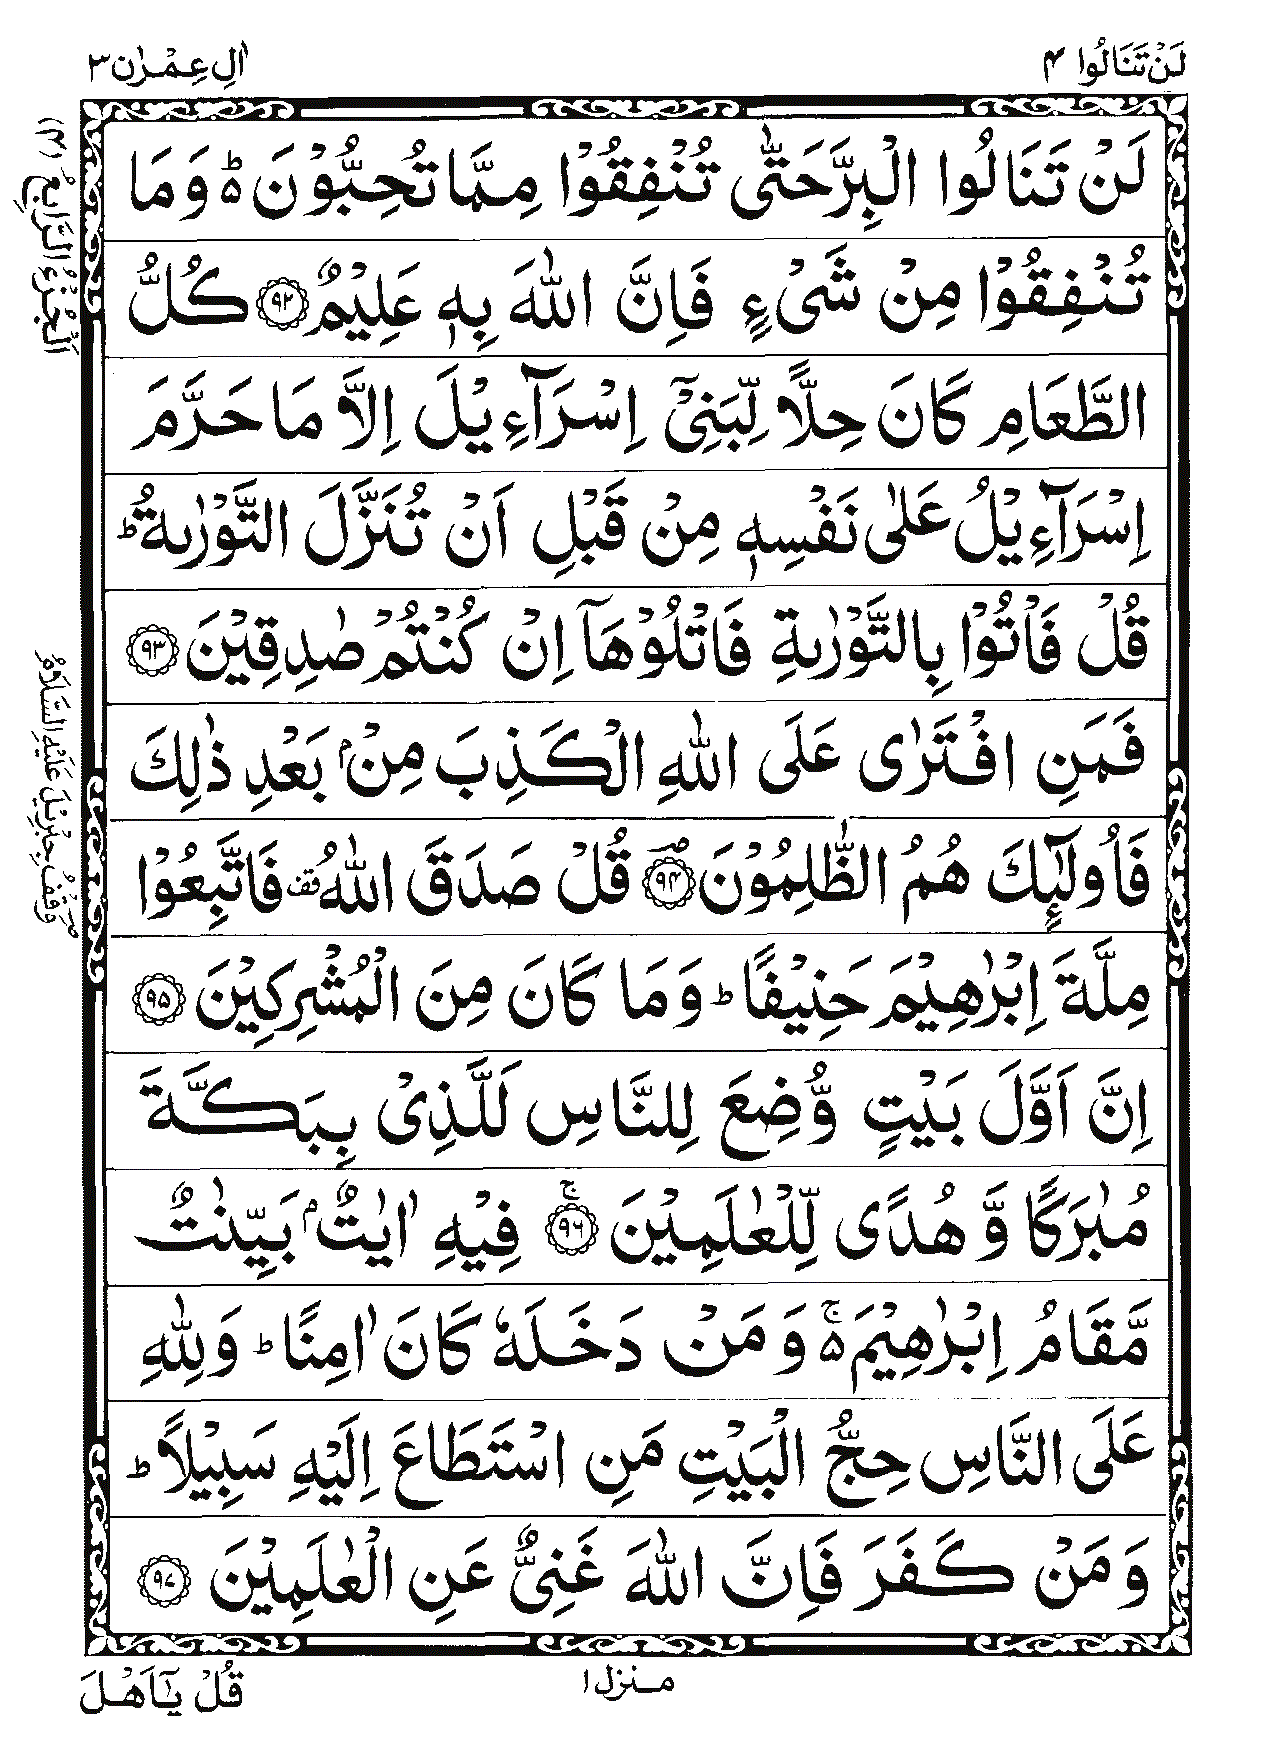 لَنْ تَنَالُوا ۴
اٰلِ عِمْرٰن ۳
اَلْجُزْءُ الرَّابِعُ (۴)
لَنْ تَنَالُوا الْبِرَّ حَتّٰى تُنْفِقُوْا مِمَّا تُحِبُّوْنَ ؕ۬ وَمَا
تُنْفِقُوْا مِنْ شَىْءٍ فَاِنَّ اللّٰهَ بِهٖ عَلِيْمٌ ﴿۹۲﴾ كُلُّ
الطَّعَامِ كَانَ حِلًّا لِّبَنِىْۤ اِسْرَآءِيْلَ اِلَّا مَا حَرَّمَ
اِسْرَآءِيْلُ عَلٰى نَفْسِهٖ مِنْ قَبْلِ اَنْ تُنَزَّلَ التَّوْرٰىةُ ؕ
قُلْ فَاْتُوْا بِالتَّوْرٰىةِ فَاتْلُوْهَاۤ اِنْ كُنْتُمْ صٰدِقِيْنَ ﴿۹۳﴾
فَمَنِ افْتَرٰى عَلَى اللّٰهِ الْكَذِبَ مِنْۢ بَعْدِ ذٰلِكَ
فَاُولٰٓئِكَ هُمُ الظّٰلِمُوْنَ ﴿۹۴﴾ؔ قُلْ صَدَقَ اللّٰهُ قف فَاتَّبِعُوْا
مِلَّةَ اِبْرٰهِيْمَ حَنِيْفًا ؕ وَمَا كَانَ مِنَ الْمُشْرِكِيْنَ ﴿۹۵﴾
اِنَّ اَوَّلَ بَيْتٍ وُّضِعَ لِلنَّاسِ لَلَّذِىْ بِبَكَّةَ
مُبٰرَكًا وَّهُدًى لِّلْعٰلَمِيْنَ ﴿۹۶﴾ۚ فِيْهِ اٰيٰتٌۢ بَيِّنٰتٌ
مَّقَامُ اِبْرٰهِيْمَ ۬ۚ وَمَنْ دَخَلَهٗ كَانَ اٰمِنًا ؕ وَلِلّٰهِ
عَلَى النَّاسِ حِجُّ الْبَيْتِ مَنِ اسْتَطَاعَ اِلَيْهِ سَبِيْلًا ؕ
وَمَنْ كَفَرَ فَاِنَّ اللّٰهَ غَنِىٌّ عَنِ الْعٰلَمِيْنَ ﴿۹۷﴾
وَقْفُ جِبْرِيْلَ عَلَيْهِ السَّلَامُ
منزل ۱
قُلْ يٰٓاَهْلَ